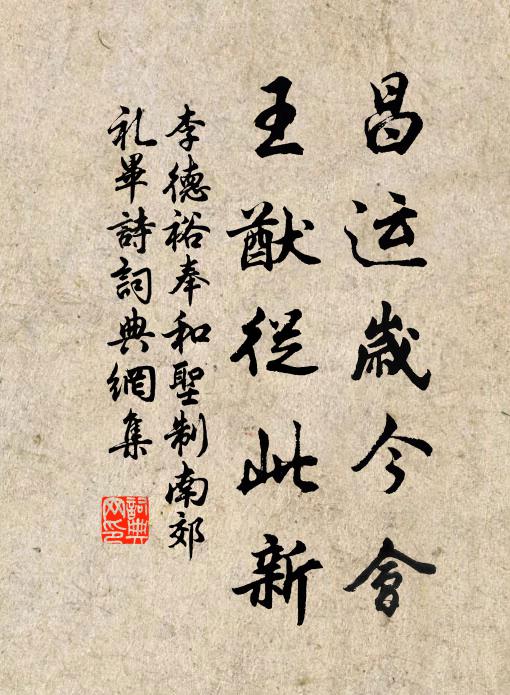 昌运歳今會
王猷從此新
李德裕奉和聖制南郊
礼畢詩詞典網集
詞典
网印